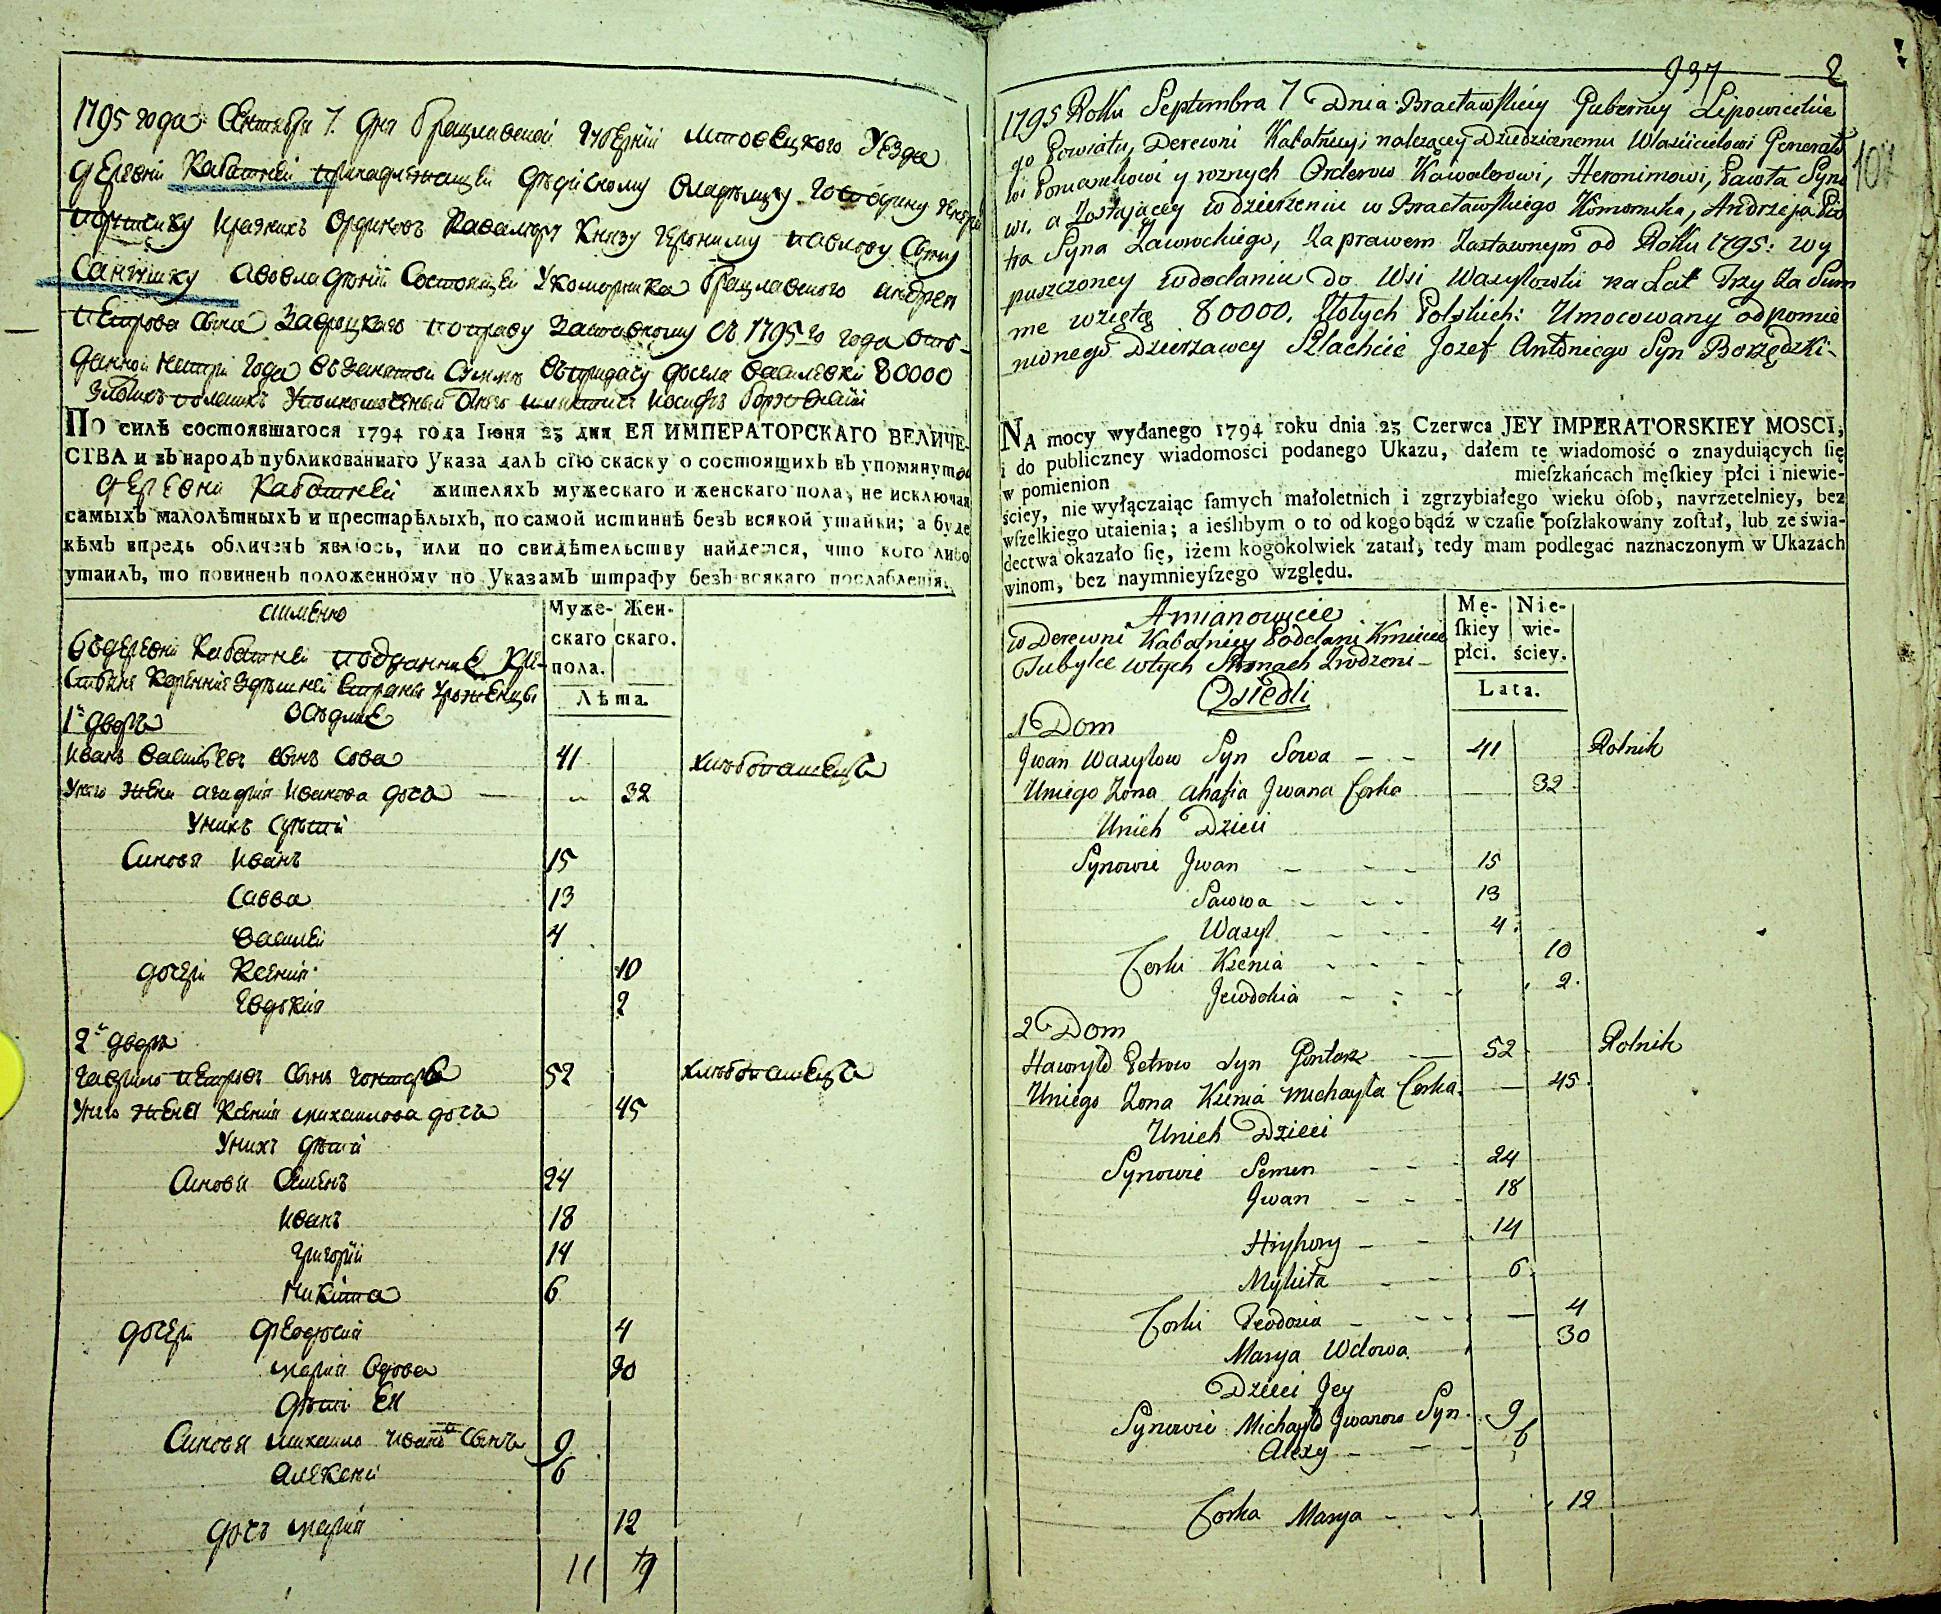 1795 года Сентября 7 дня Брацлавской Губернїи Липовецкого Уезда
деревнї Кабатней принадлежащей дѣдїчному владѣльцу Господину Генералъ
Поручику Кравникъ Ординовъ Кавалеру Князу Герониму Павлову Сыну
Сангушку авовладѣнїи Состоящей Укоморника Брацлавского андрея
Петрова Сына Завроцкаго поправу заставному Съ 1795 го года
данной на три Года взанятой Суммѣ впридачу досела Василевки 80000
злотихъ полскихъ Уполномоченный Онаго шляхтичъ Иосифъ
По силѣ состоявшагося 1794 года Iюня 23 дня ЕЯ ИМПЕРАТОРСКАГО ВЕЛИЧЕ-
СТВА и въ народъ публикованнаго Указа далъ сїю скаску о состоящихъ въ упомянутой
деревни Кабатней жителяхъ мужескаго и женскаго пола, не исключая
самыхъ малолѣтныхъ и престарѣлыхъ, по самой истиннѣ безъ всякой утайки; а буде
кѣмъ впредь обличенъ явлюсь, или по свидѣтельству найдется, что кого либо
утаилъ, то повиненъ положенному по Указамъ штрафу безъ всякаго послабленїя.
аимено
Муже- Жен-
скаго скаго.
пола.
Лѣта.
Въдеревнї Кабатней подданние Кре-
стьяне Коренние здешней Страны уроженцы
1й дворъ Оседлие
Иванъ Васильевъ сынъ Сова 41 хлѣбопашецъ
Унего жена агафия Иванова дочь — 32
Унихъ дѣти
Синовя Иванъ 15
Савва 13
Василей 4
дочери Ксения 10
Евдокия 2
2й дворъ
Гаврило Петровъ Сынъ Гонтаръ 52 хлѣбопашецъ
Унего жена Ксения михаилова дочь 45
Унихъ дѣти
Синовя Семенъ 24
Иванъ 18
Григорїй 14
Никита 6
дочери Феодосия 4
мария вдова 30
дѣти Ея
Синовя михаило Ивановъ Сынъ 9
алексѣй 6
дочь мария 12
11 9
937 — 2
107
1795 Roku Septembra 7 Dnia Bracławskiey Guberny Lipowieckie
go Powiatu, Derewni Kabatniey; należącey Dziedzicznemu Właścicielowi Generało
wi Poruczikowi y roznych Orderow Kawalerowi, Heronimowi, Pawła Syno
wi, a Zostającey w dzierżeniu w Bracławskiego Komornika, Andrzeja Pio
tra Syna Zawrockiego, Za prawem Zastawnym od Roku 1795: wy
puszczoney wdodaniu do Wsi Wasylowki na Lat Trzy Za Sum
me wziętą 80000. Złotych Polskich: Umocowany od pomie
nionego Dzierżawcy Szlachcic Jozef Antoniego Syn Borzędzki –
NA mocy wydanego 1794 roku dnia 23 Czerwca JEY IMPERATORSKIEY MOSCI,
i do publiczney wiadomości podanego Ukazu, dałem tę wiadomość o znayduiących się
w pomienion mieſzkańcach męſkiey płci i niewie-
ściey, nie wyłączaiąc ſamych małoletnich i zgrzybiałego wieku oſob, nayrzetelniey, bez
wſzelkiego utaienia; a ieślibym o to od kogo bądź w czaſie poſzlakowany zoſtał, lub ze świa-
dectwa okazało się, iżem kogokolwiek zataił, tedy mam podlegać naznaczonym w Ukazach
winom, bez naymnieyſzego względu.
Amianowicie
Mę- Nie-
ſkiey wie-
płci. ściey.
Lata.
w Derewni Kabatniey Poddani Kmiecie
Tubylce wtych Stronach Zrodzeni –
Osiedli
1 Dom
Jwan Wasylow Syn Sowa 41 Rolnik
Uniego Zona Ahafia Jwana Corka 32
Unich Dzieci
Synowie Jwan 15
Sawwa 13
Wasyl 4
Corki Ksenia 10
Jewdokia 2
2 Dom
Hawryło Petrow Syn Gontarz 52 Rolnik
Uniego Zona Ksenia Michayła Corka 45
Unich Dzieci
Synowie Semen 24
Jwan 18
Hryhory 14
Mykita 6
Corki Teodozia 4
Marya Wdowa 30
Dzieci Jey
Synowie Michayło Jwanow Syn 9
Alexy 6
Corka Marya 12